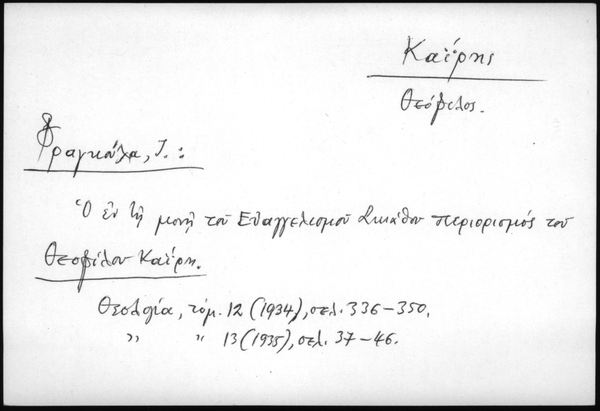 Καΐρης
Θεόφιλος.
Φραγκούλα, Ι.:
Ὁ ἐν τῇ μονῇ τοῦ Εὐαγγελισμοῦ Σκιάθου περιορισμός τοῦ
Θεοφίλου Καΐρη.
Θεολογία, τόμ. 12 (1934), σελ. 336-350.
„ „ 13 (1935), σελ. 37-46.